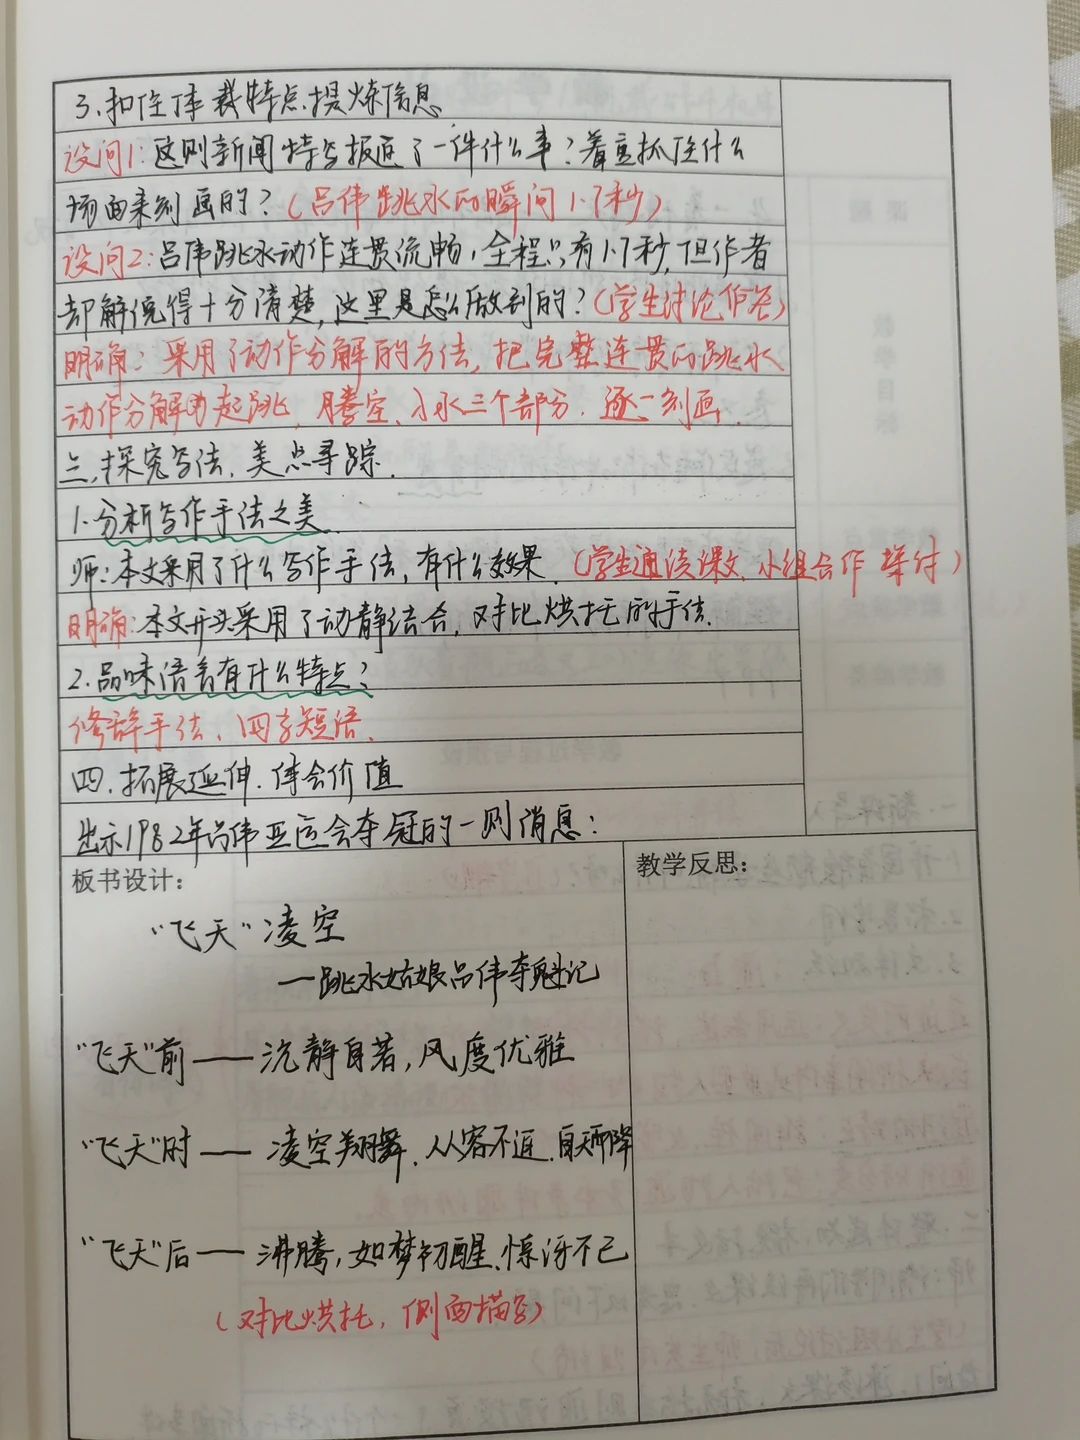 3.扣住体裁特点,提炼信息
设问1:这则新闻特写报道了一件什么事?着重抓住什么
场面来刻画的?(吕伟跳水的瞬间1.7秒)
设问2:吕伟跳水动作连贯流畅,全程只有1.7秒,但作者
却解说得十分清楚,这里是怎么做到的?(学生讨论作答)
明确:采用了动作分解的方法,把完整连贯的跳水
动作分解为起跳、腾空、入水三个部分,逐一刻画.
三.探究写法,美点寻踪.
1.分析写作手法之美.
师:本文采用了什么写作手法,有什么效果.(学生通读课文,小组合作探讨)
明确:本文开头采用了动静结合,对比烘托的手法.
2.品味语言有什么特点?
修辞手法、四字短语.
四.拓展延伸.体会价值
出示1982年吕伟亚运会夺冠的一则消息:
板书设计:
教学反思:
"飞天"凌空
——跳水姑娘吕伟夺魁记
"飞天"前——沉静自若,风度优雅
"飞天"时——凌空翔舞、从容不迫、自天而降
"飞天"后——沸腾,如梦初醒、惊讶不已
(对比烘托,侧面描写)